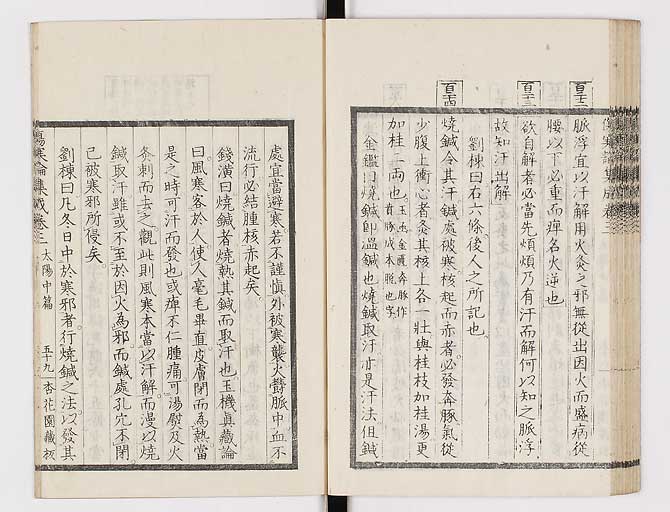 百十二
脈浮宜以汗解用火灸之邪無從出因火而盛病從
腰以下必重而痺名火逆也
百十三
欲自解者必當先煩煩乃有汗而解何以知之脈浮
故知汗出解
劉棟曰右六條後人之所記也
百十四
燒鍼令其汗鍼處被寒核起而赤者必發奔豚氣從
少腹上衝心者灸其核上各一壯與桂枝加桂湯更
加桂二兩也
金鑑曰燒鍼即溫鍼也燒鍼取汗亦是汗法但鍼
處宜當避寒若不謹慎外被寒襲火欝脈中血不
流行必結腫核赤起矣
錢潢曰燒鍼者燒熱其鍼而取汗也玉機真藏論
曰風寒客於人使人毫毛畢直皮膚閉而為熱當
是之時可汗而發也或痺不仁腫痛可湯熨及火
灸刺而去之觀此則風寒本當以汗解而漫以燒
鍼取汗雖或不至於因火為邪而鍼處孔穴不閉
已被寒邪所侵矣
劉棟曰凡冬日中於寒邪者行燒鍼之法以發其
傷寒論集成卷三 太陽中篇 五十九 杏花園藏板